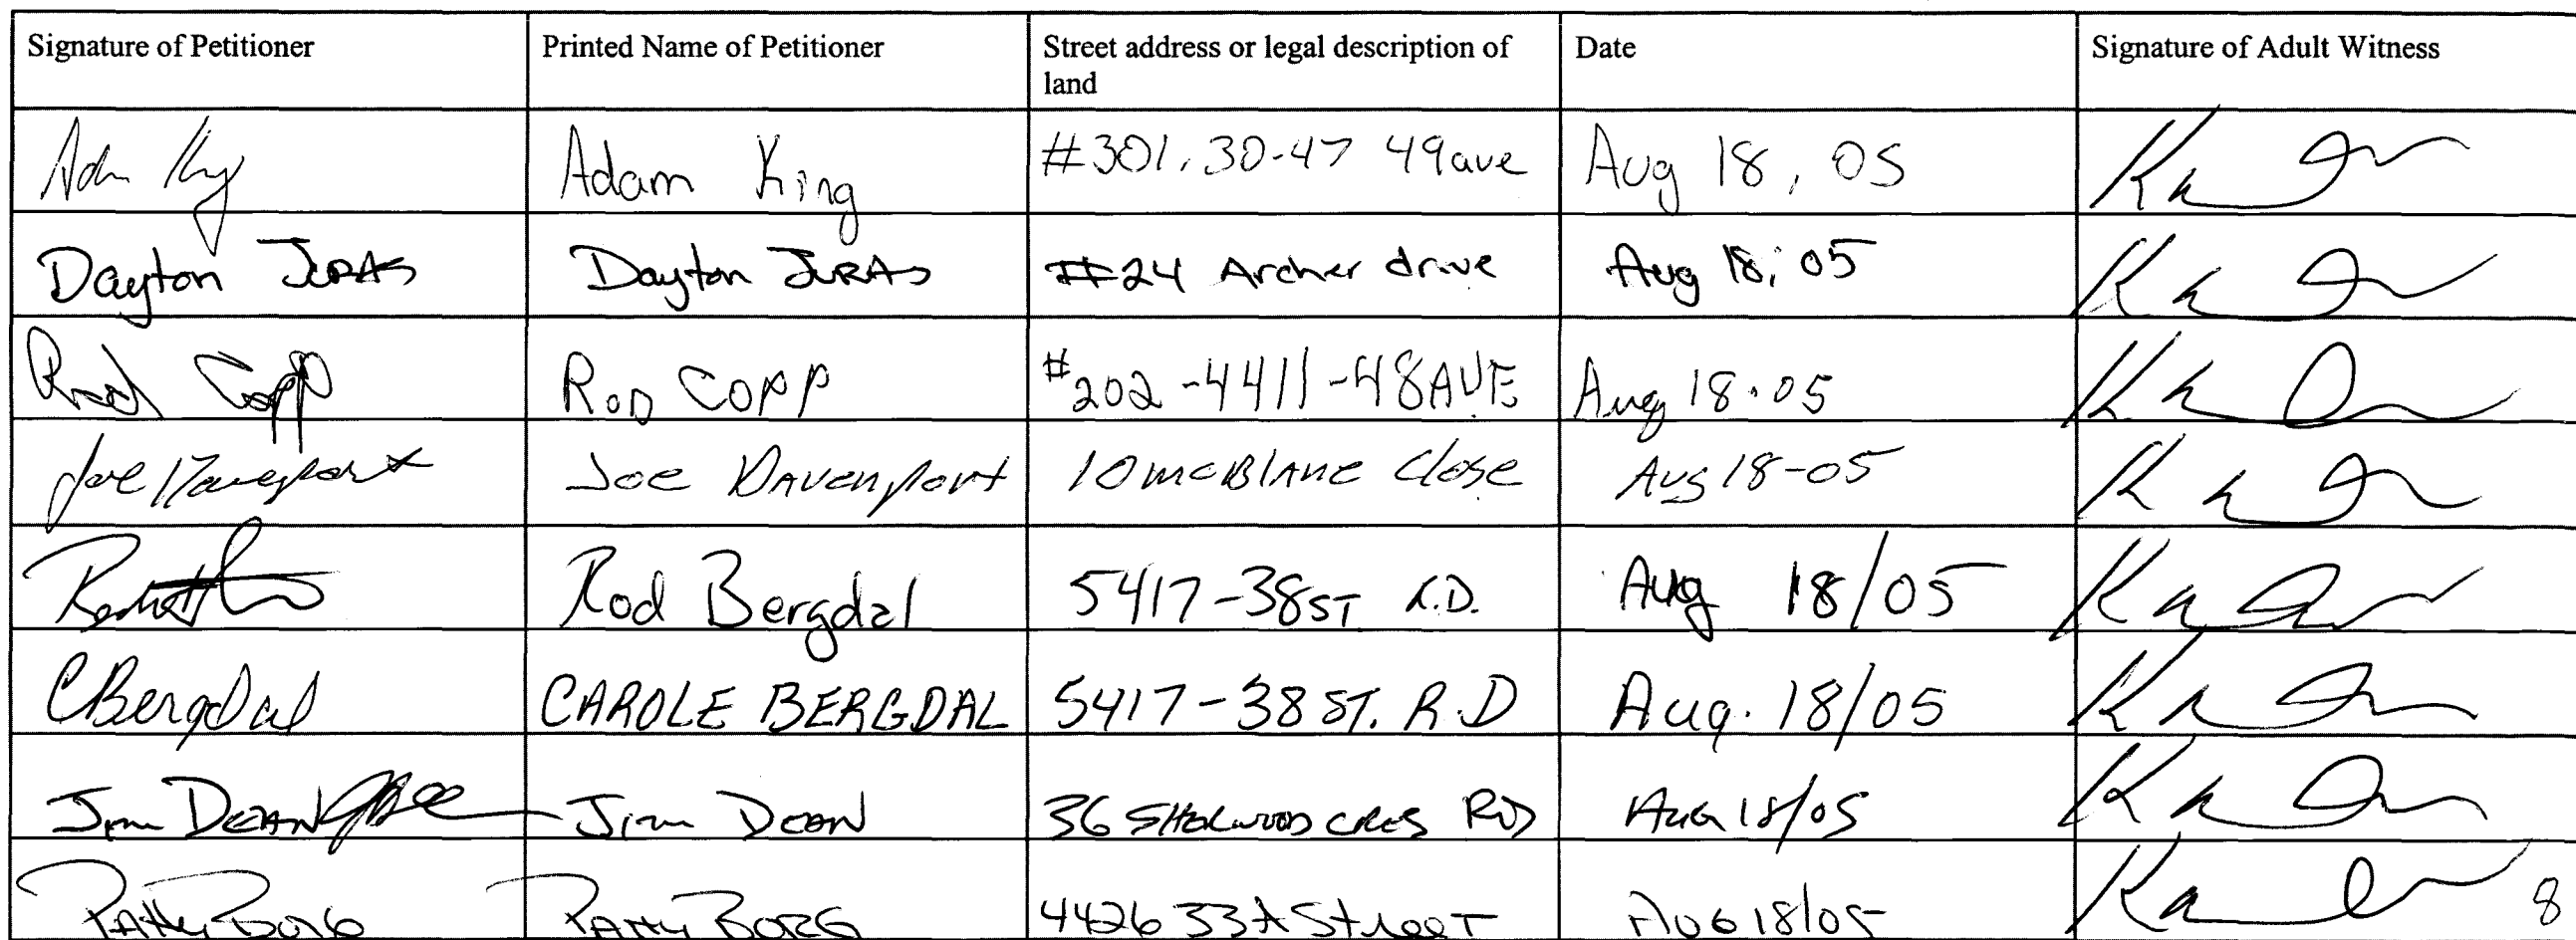 Signature of Petitioner Printed Name of Petitioner Street address or legal description of land Date Signature of Adult Witness
Adam King #301, 30-47 49ave Aug 18, 05
Dayton JURAS Dayton JURAS #24 Archer drive Aug 18, 05
Rod Copp ROD COPP #202-4411-48AVE Aug 18.05
Joe Davenport Joe Davenport 10 mcBlane Close Aug 18-05
Rod Bergdal 5417-38ST R.D. Aug 18/05
CBergdal CAROLE BERGDAL 5417-38 ST. R.D Aug. 18/05
Jim DEAN Jim DEAN 36 SHERWOOD CRES RD Aug 18/05
PATTY BORG PATTY BORG 4426 33A Street AUG 18/05 8